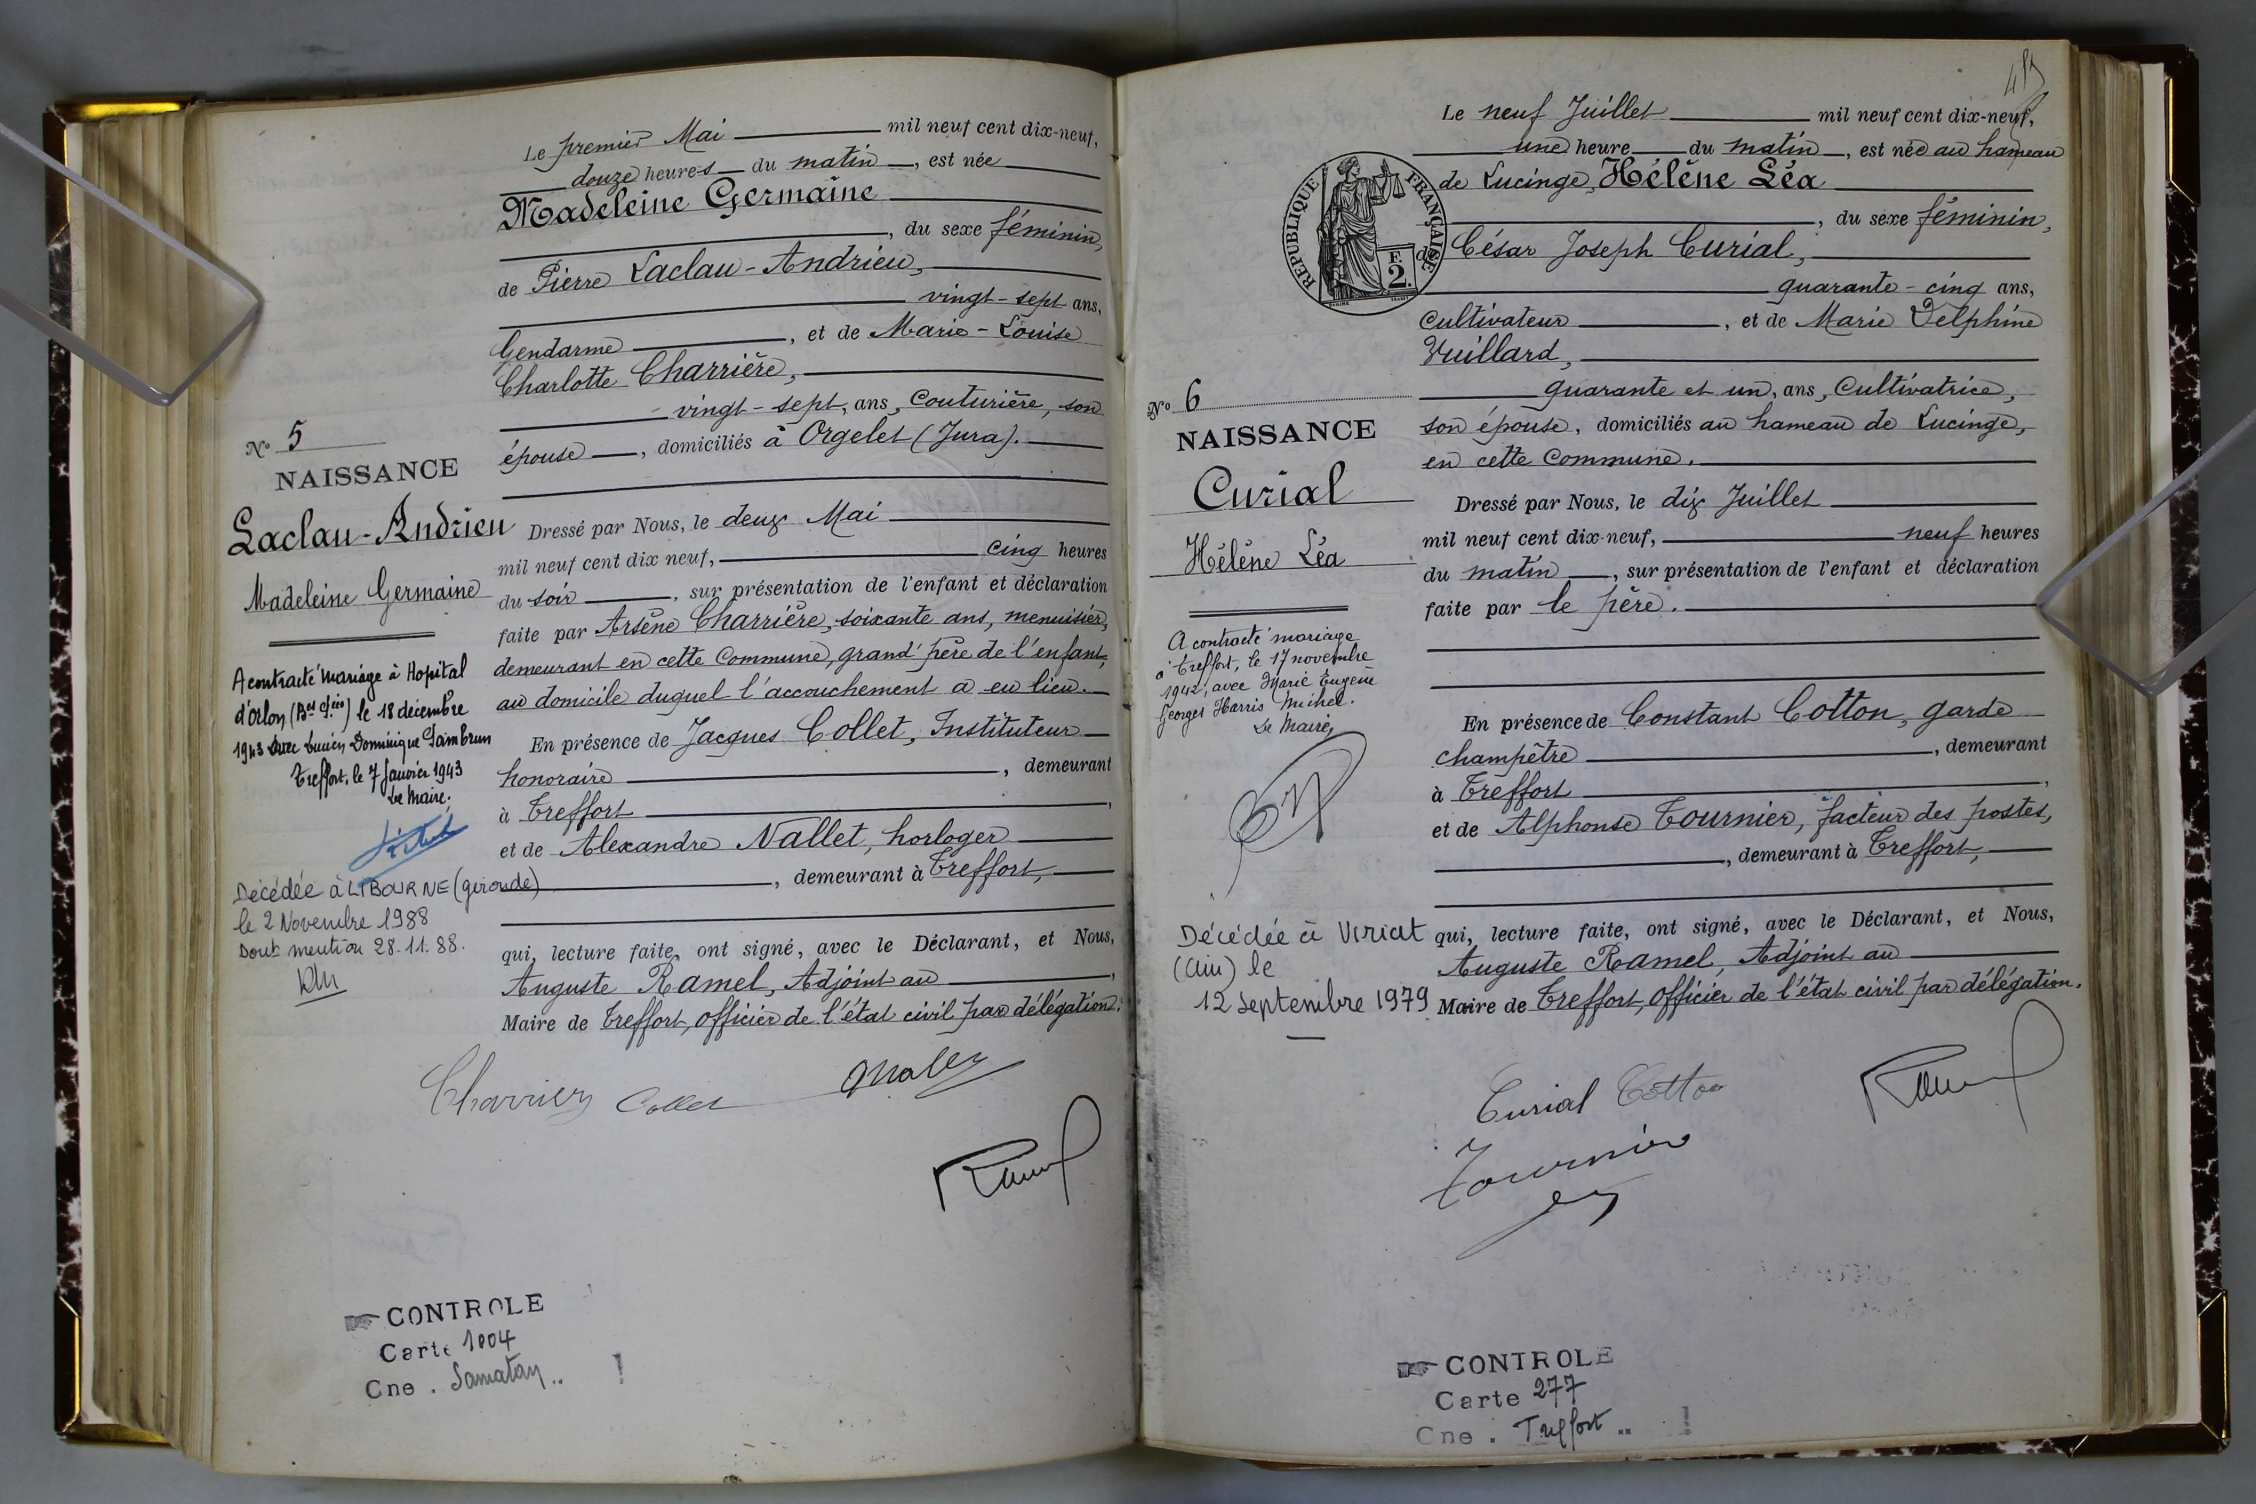 Le premier Mai mil neuf cent dix-neuf,
douze heures du matin, est née
Madeleine Germaine
, du sexe féminin,
de Pierre Laclau-Andrieu,
vingt-sept ans,
Gendarme, et de Marie-Louise
Charlotte Charrière,
vingt-sept, ans, Couturière, son
épouse, domiciliés à Orgelet (Jura).
No 5
NAISSANCE
Laclau-Andrieu
Madeleine Germaine
Dressé par Nous, le deux Mai
mil neuf cent dix neuf, cinq heures
du soir, sur présentation de l'enfant et déclaration
faite par Arsène Charrière, soixante ans, menuisier,
demeurant en cette Commune, grand'père de l'enfant,
au domicile duquel l'accouchement a eu lieu.
En présence de Jacques Collet, Instituteur
honoraire, demeurant
à Treffort,
et de Alexandre Nallet, horloger
, demeurant à Treffort,
qui, lecture faite, ont signé, avec le Déclarant, et Nous,
Auguste Ramel, Adjoint au,
Maire de Treffort, officier de l'état civil par délégation.
A contracté mariage à Hopital
d'Orlon (Bses Pces) le 18 décembre
1943 avec Lucien Dominique Sambrun
Treffort, le 7 Janvier 1943
Le Maire.
Décédée à LIBOURNE (gironde)
le 2 Novembre 1988
Dont mention 28.11.88.
Collet
Ramel
CONTROLE
Carte 1004
Cne. Samatan..!
487
Le neuf Juillet mil neuf cent dix-neuf,
une heure du matin, est née au hameau
de Lucinge, Hélène Léa
, du sexe féminin,
de César Joseph Curial,
quarante-cinq ans,
Cultivateur, et de Marie Delphine
Vuillard,
quarante et un, ans, Cultivatrice,
son épouse, domiciliés au hameau de Lucinge,
en cette Commune.
REPUBLIQUE FRANÇAISE
F.
2.
No 6
NAISSANCE
Curial
Hélène Léa
Dressé par Nous, le dix Juillet
mil neuf cent dix-neuf, neuf heures
du matin, sur présentation de l'enfant et déclaration
faite par le père.
En présence de Constant Cotton, garde
champêtre, demeurant
à Treffort,
et de Alphonse Tournier, facteur des postes,
, demeurant à Treffort,
qui, lecture faite, ont signé, avec le Déclarant, et Nous,
Auguste Ramel, Adjoint au
Maire de Treffort, officier de l'état civil par délégation.
A contracté mariage
à Treffort, le 17 novembre
1942, avec Marie Eugène
Georges Harris Michel.
Le Maire,
Décédée à Viriat
(Ain) le
12 septembre 1979
Curial Cotton
Ramel
Tournier
CONTROLE
Carte 277
Cne. Treffort..!